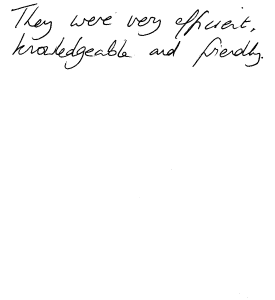 They were very efficient,
knowledgeable and friendly.